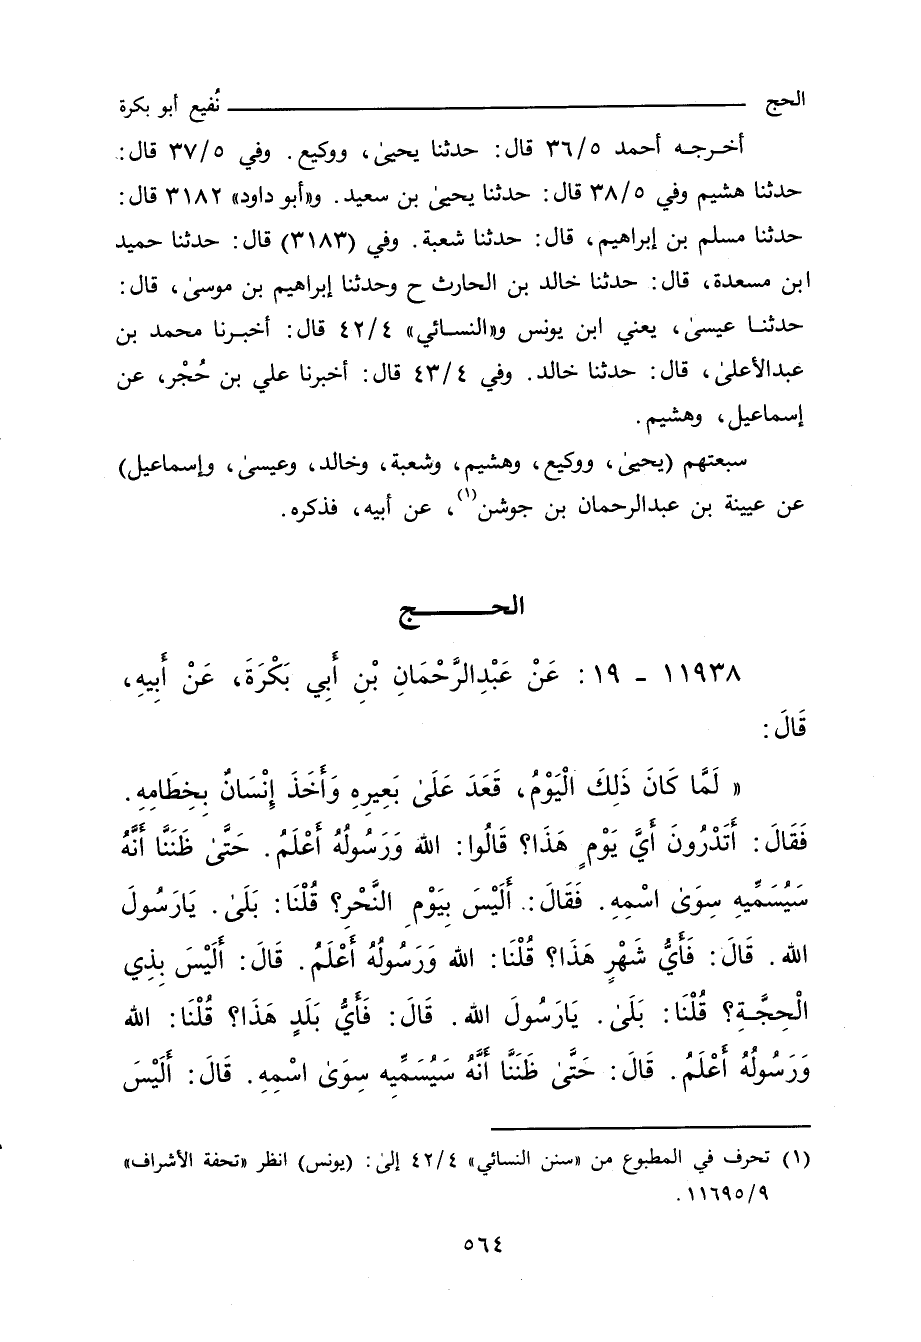 الحج ـــــــ نُفيع أبو بكرة
أخرجه أحمد ٣٦/٥ قال: حدثنا يحيىٰ، ووكيع. وفي ٣٧/٥ قال:
حدثنا هشيم وفي ٣٨/٥ قال: حدثنا يحيىٰ بن سعيد. و«أبو داود» ٣١٨٢ قال:
حدثنا مسلم بن إبراهيم، قال: حدثنا شعبة. وفي (٣١٨٣) قال: حدثنا حميد
ابن مسعدة، قال: حدثنا خالد بن الحارث ح وحدثنا إبراهيم بن موسىٰ، قال:
حدثنا عيسىٰ، يعني ابن يونس و«النسائي» ٤٢/٤ قال: أخبرنا محمد بن
عبدالأعلىٰ، قال: حدثنا خالد. وفي ٤٣/٤ قال: أخبرنا علي بن حُجْر، عن
إسماعيل، وهشيم.
سبعتهم (يحيىٰ، ووكيع، وهشيم، وشعبة، وخالد، وعيسىٰ، وإسماعيل)
عن عيينة بن عبدالرحمان بن جوشن(١)، عن أبيه، فذكره.
الحـــــج
١١٩٣٨ - ١٩: عَنْ عَبْدِالرَّحْمَانِ بْنِ أَبِي بَكْرَةَ، عَنْ أَبِيهِ،
قَالَ:
« لَمَّا كَانَ ذَلِكَ الْيَوْمُ، قَعَدَ عَلَىٰ بَعِيرِهِ وَأَخَذَ إِنْسَانٌ بِخِطَامِهِ.
فَقَالَ: أَتَدْرُونَ أَيَّ يَوْمٍ هَذَا؟ قَالُوا: الله وَرَسُولُهُ أَعْلَمُ. حَتَّىٰ ظَنَنَّا أَنَّهُ
سَيُسَمِّيهِ سِوَىٰ اسْمِهِ. فَقَالَ: أَلَيْسَ بِيَوْمِ النَّحْرِ؟ قُلْنَا: بَلَىٰ. يَارَسُولَ
الله. قَالَ: فَأَيُّ شَهْرٍ هَذَا؟ قُلْنَا: الله وَرَسُولُهُ أَعْلَمُ. قَالَ: أَلَيْسَ بِذِي
الْحِجَّةِ؟ قُلْنَا: بَلَىٰ. يَارَسُولَ الله. قَالَ: فَأَيُّ بَلَدٍ هَذَا؟ قُلْنَا: الله
وَرَسُولُهُ أَعْلَمُ. قَالَ: حَتَّىٰ ظَنَنَّا أَنَّهُ سَيُسَمِّيهِ سِوَىٰ اسْمِهِ. قَالَ: أَلَيْسَ
(١) تحرف في المطبوع من «سنن النسائي» ٤٢/٤ إلىٰ: (يونس) انظر «تحفة الأشراف»
١١٦٩٥/٩.
٥٦٤